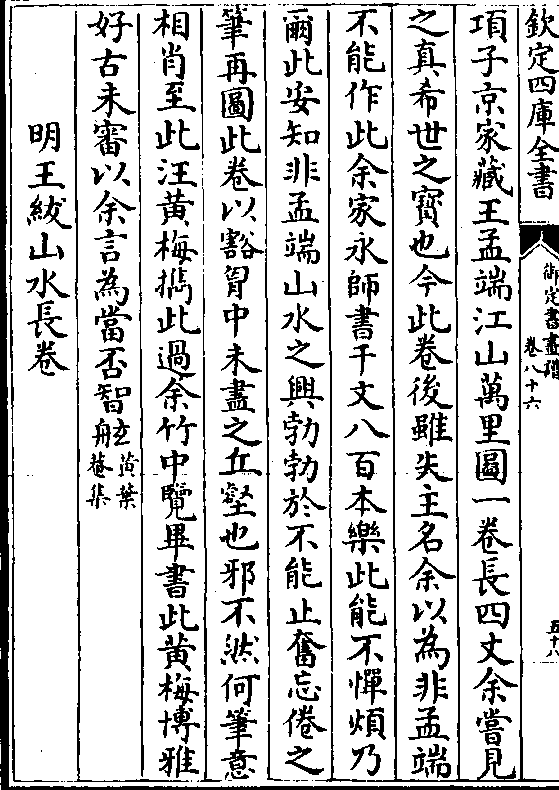 欽定四庫全書
御定書畫譜
卷八十六
五十八
項子京家藏王孟端江山萬里圖一卷長四丈余嘗見
之真希世之寳也今此卷後雖失主名余以為非孟端
不能作此余家永師書千文八百本樂此能不憚煩乃
爾此安知非孟端山水之興勃勃於不能止奮忘倦之
筆再圖此卷以豁胷中未盡之丘壑也邪不然何筆意
相肖至此汪黄梅擕此過余竹中覽畢書此黄梅博雅
好古未審以余言為當否智𫠦黄葉
舟菴集
明王紱山水長卷